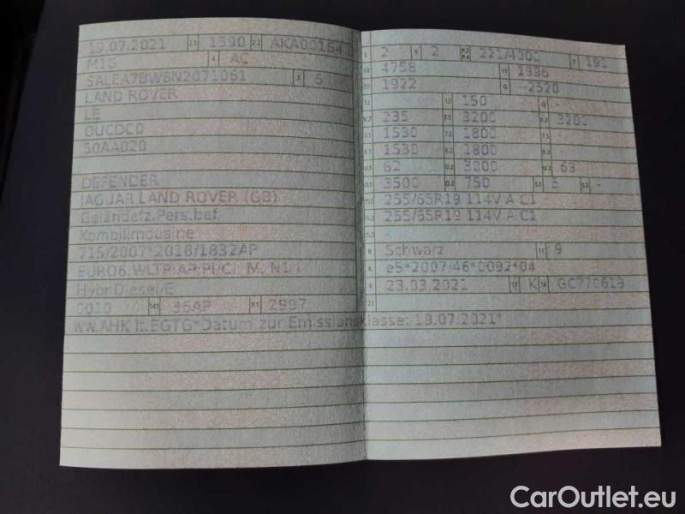 19.07.2021 2.1 1590 2.2 AKA00164
M1G 4 AC
SALEA7BW8N2071061 3 6
LAND ROVER
LE
DUCDC0
50AA020
DEFENDER
JAGUAR LAND ROVER (GB)
Geländefz.Pers.bef.
Kombilimousine
715/2007*2018/1832AP
EURO6,WLTP,AP,PI/CI, M, N1 I
Hybr.Diesel/E
0010 14.1 36AP P.1 2997
ww.AHK lt.EGTG*Datum zur Emissionsklasse: 19.07.2021*
2 2 221/4000 191
4758 1996
1922 2520
150 -
235 3200 3200
1530 1800 -
1530 1800 -
62 3000 63
3500 750 5 -
255/65R19 114V A C1
255/65R19 114V A C1
Schwarz 9
e5*2007/46*0092*04
23.03.2021 K GC770619
CarOutlet.eu